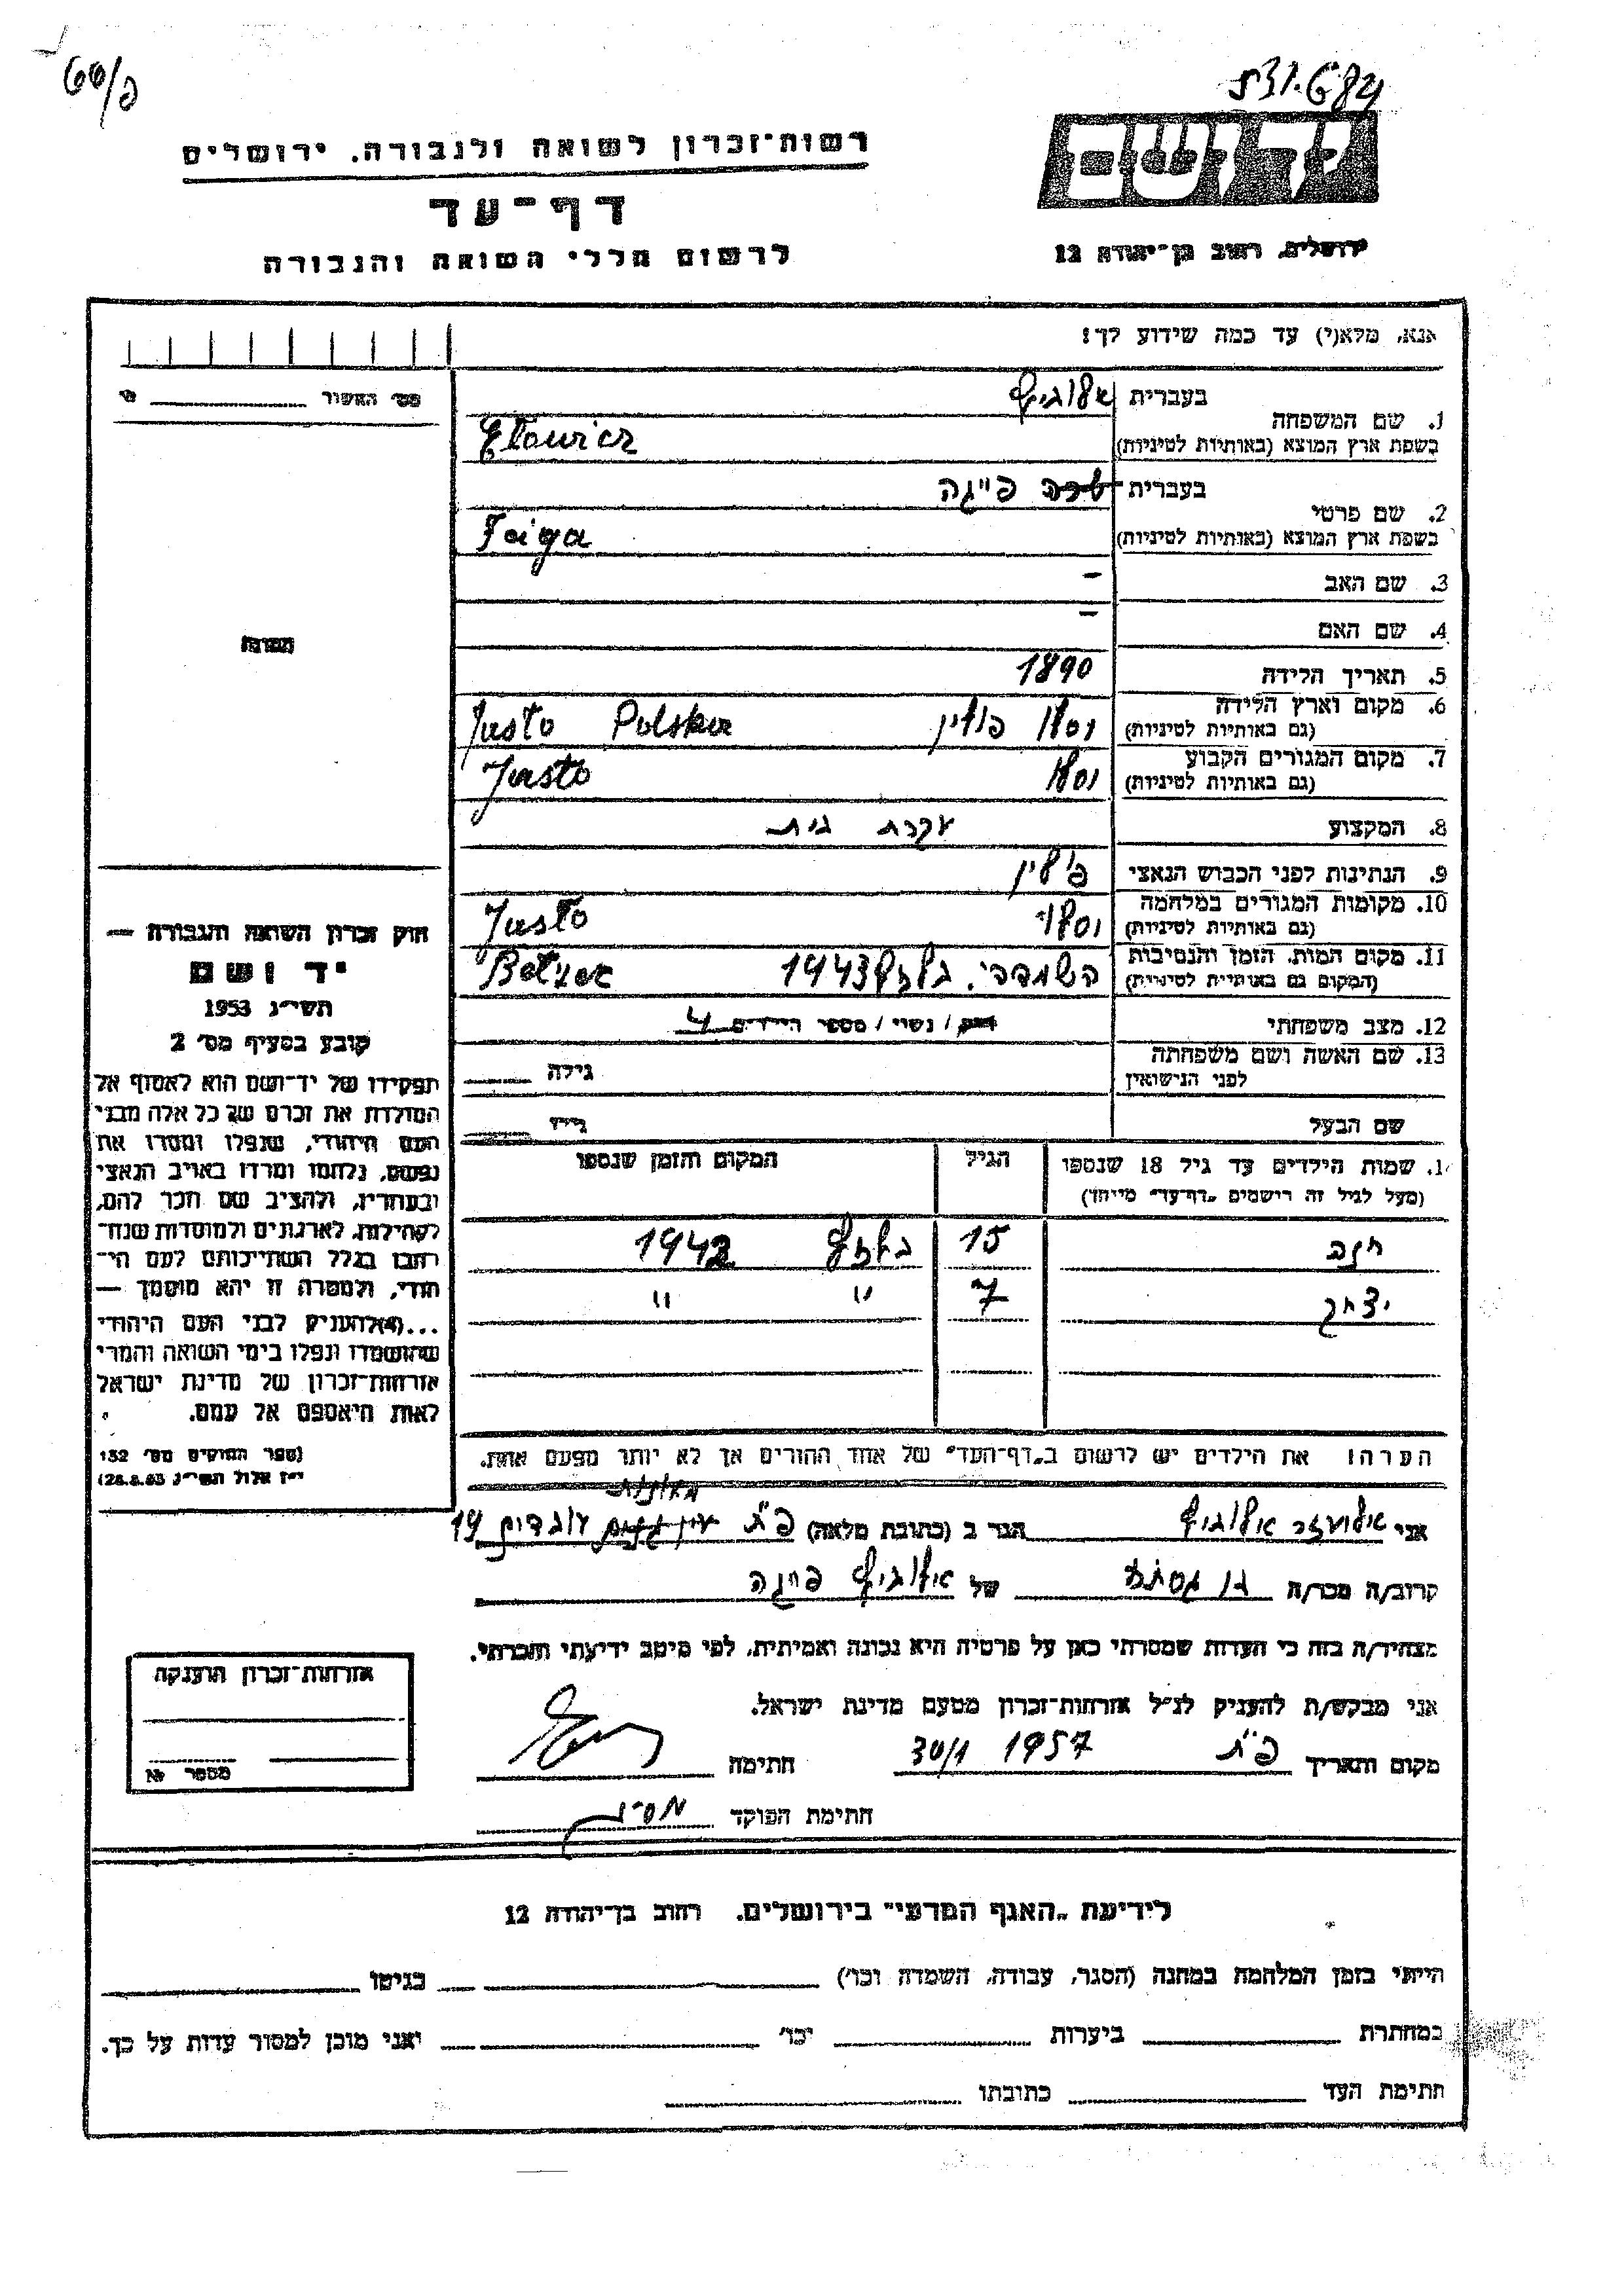 531.684
66/פ
יד ושם
רשות-זכרון לשואה ולגבורה. ירושלים
דף-עד
לרשום חללי השואה והגבורה
ירושלים, רחוב בן-יהודה 12
אנא, מלא(י) עד כמה שידוע לך!
1. שם המשפחה
בעברית
בשפת ארץ המוצא (באותיות לטיניות)
Elowicz
2. שם פרטי
בעברית פייגה
בשפת ארץ המוצא (באותיות לטיניות)
Faiga
3. שם האב –
4. שם האם –
5. תאריך הלידה 1890
6. מקום וארץ הלידה
(גם באותיות לטיניות)
יסלו פולין Jasło Polska
7. מקום המגורים הקבוע
(גם באותיות לטיניות)
יסלו Jasło
8. המקצוע עקרת בית
9. הנתינות לפני הכבוש הנאצי פולין
10. מקומות המגורים במלחמה
(גם באותיות לטיניות)
יסלו Jasło
11. מקום המות, הזמן והנסיבות
(המקום גם באותיות לטיניות)
בלזץ 1943 Belzec
12. מצב משפחתי רוק / נשוי / מספר הילדים 4
13. שם האשה ושם משפחתה
לפני הנישואין
גילה
שם הבעל
גילו
שמות הילדים עד גיל 18 שנספו
(מעל לגיל זה רישמים "דף-עד" מייחד)
הגיל
המקום והזמן שנספו
חנה 15 בלזץ 1942
יצחק 7 " "
הערה: את הילדים יש לרשום ב"דף-העד" של אחד ההורים אך לא יותר מפעם אחת.
מס' האשור
תמונה
חוק זכרון השואה והגבורה —
יד ושם
תשי"ג 1953
קובע בסעיף מס' 2
תפקידו של יד-ושם הוא לאסוף אל
המולדת את זכרם של כל אלה מבני
העם היהודי, שנפלו ומסרו את
נפשם, נלחמו ומרדו באויב הנאצי
ובעוזריו, ולהציב שם וזכר להם,
לקהילות, לארגונים ולמוסדות שנח-
רחבו בגלל השתייכותם לעם הי-
הודי, ולמטרה זו יהא מוסמך —
...(4) להעניק לבני העם היהודי
שהושמדו ונפלו בימי השואה והמרי
אזרחות-זכרון של מדינת ישראל
לאות היאספם אל עמם.
(ספר החוקים מס' 132
י"ז אלול תשי"ג 28.8.53)
אני אליעזר הגר ב (כתובת מלאה) פ"ת 19
קרוב/ה מכר/ה בן של פייגה
מצהיר/ה בזה כי העדות שמסרתי כאן על פרטיה היא נכונה ואמיתית, לפי מיטב ידיעתי והכרתי.
אני מבקש/ת להעניק לנ"ל אזרחות-זכרון מטעם מדינת ישראל.
מקום ותאריך פ"ת 30/1 1957 חתימה
חתימת הפוקד
אזרחות-זכרון הוענקה
מספר №
לידיעת "האגף המדעי" בירושלים. רחוב בן-יהודה 12
הייתי בזמן המלחמה במחנה (הסגר, עבודה, השמדה וכו') בגיטו
במחתרת ביערות וכו' ואני מוכן למסור עדות על כך.
חתימת העד כתובתו